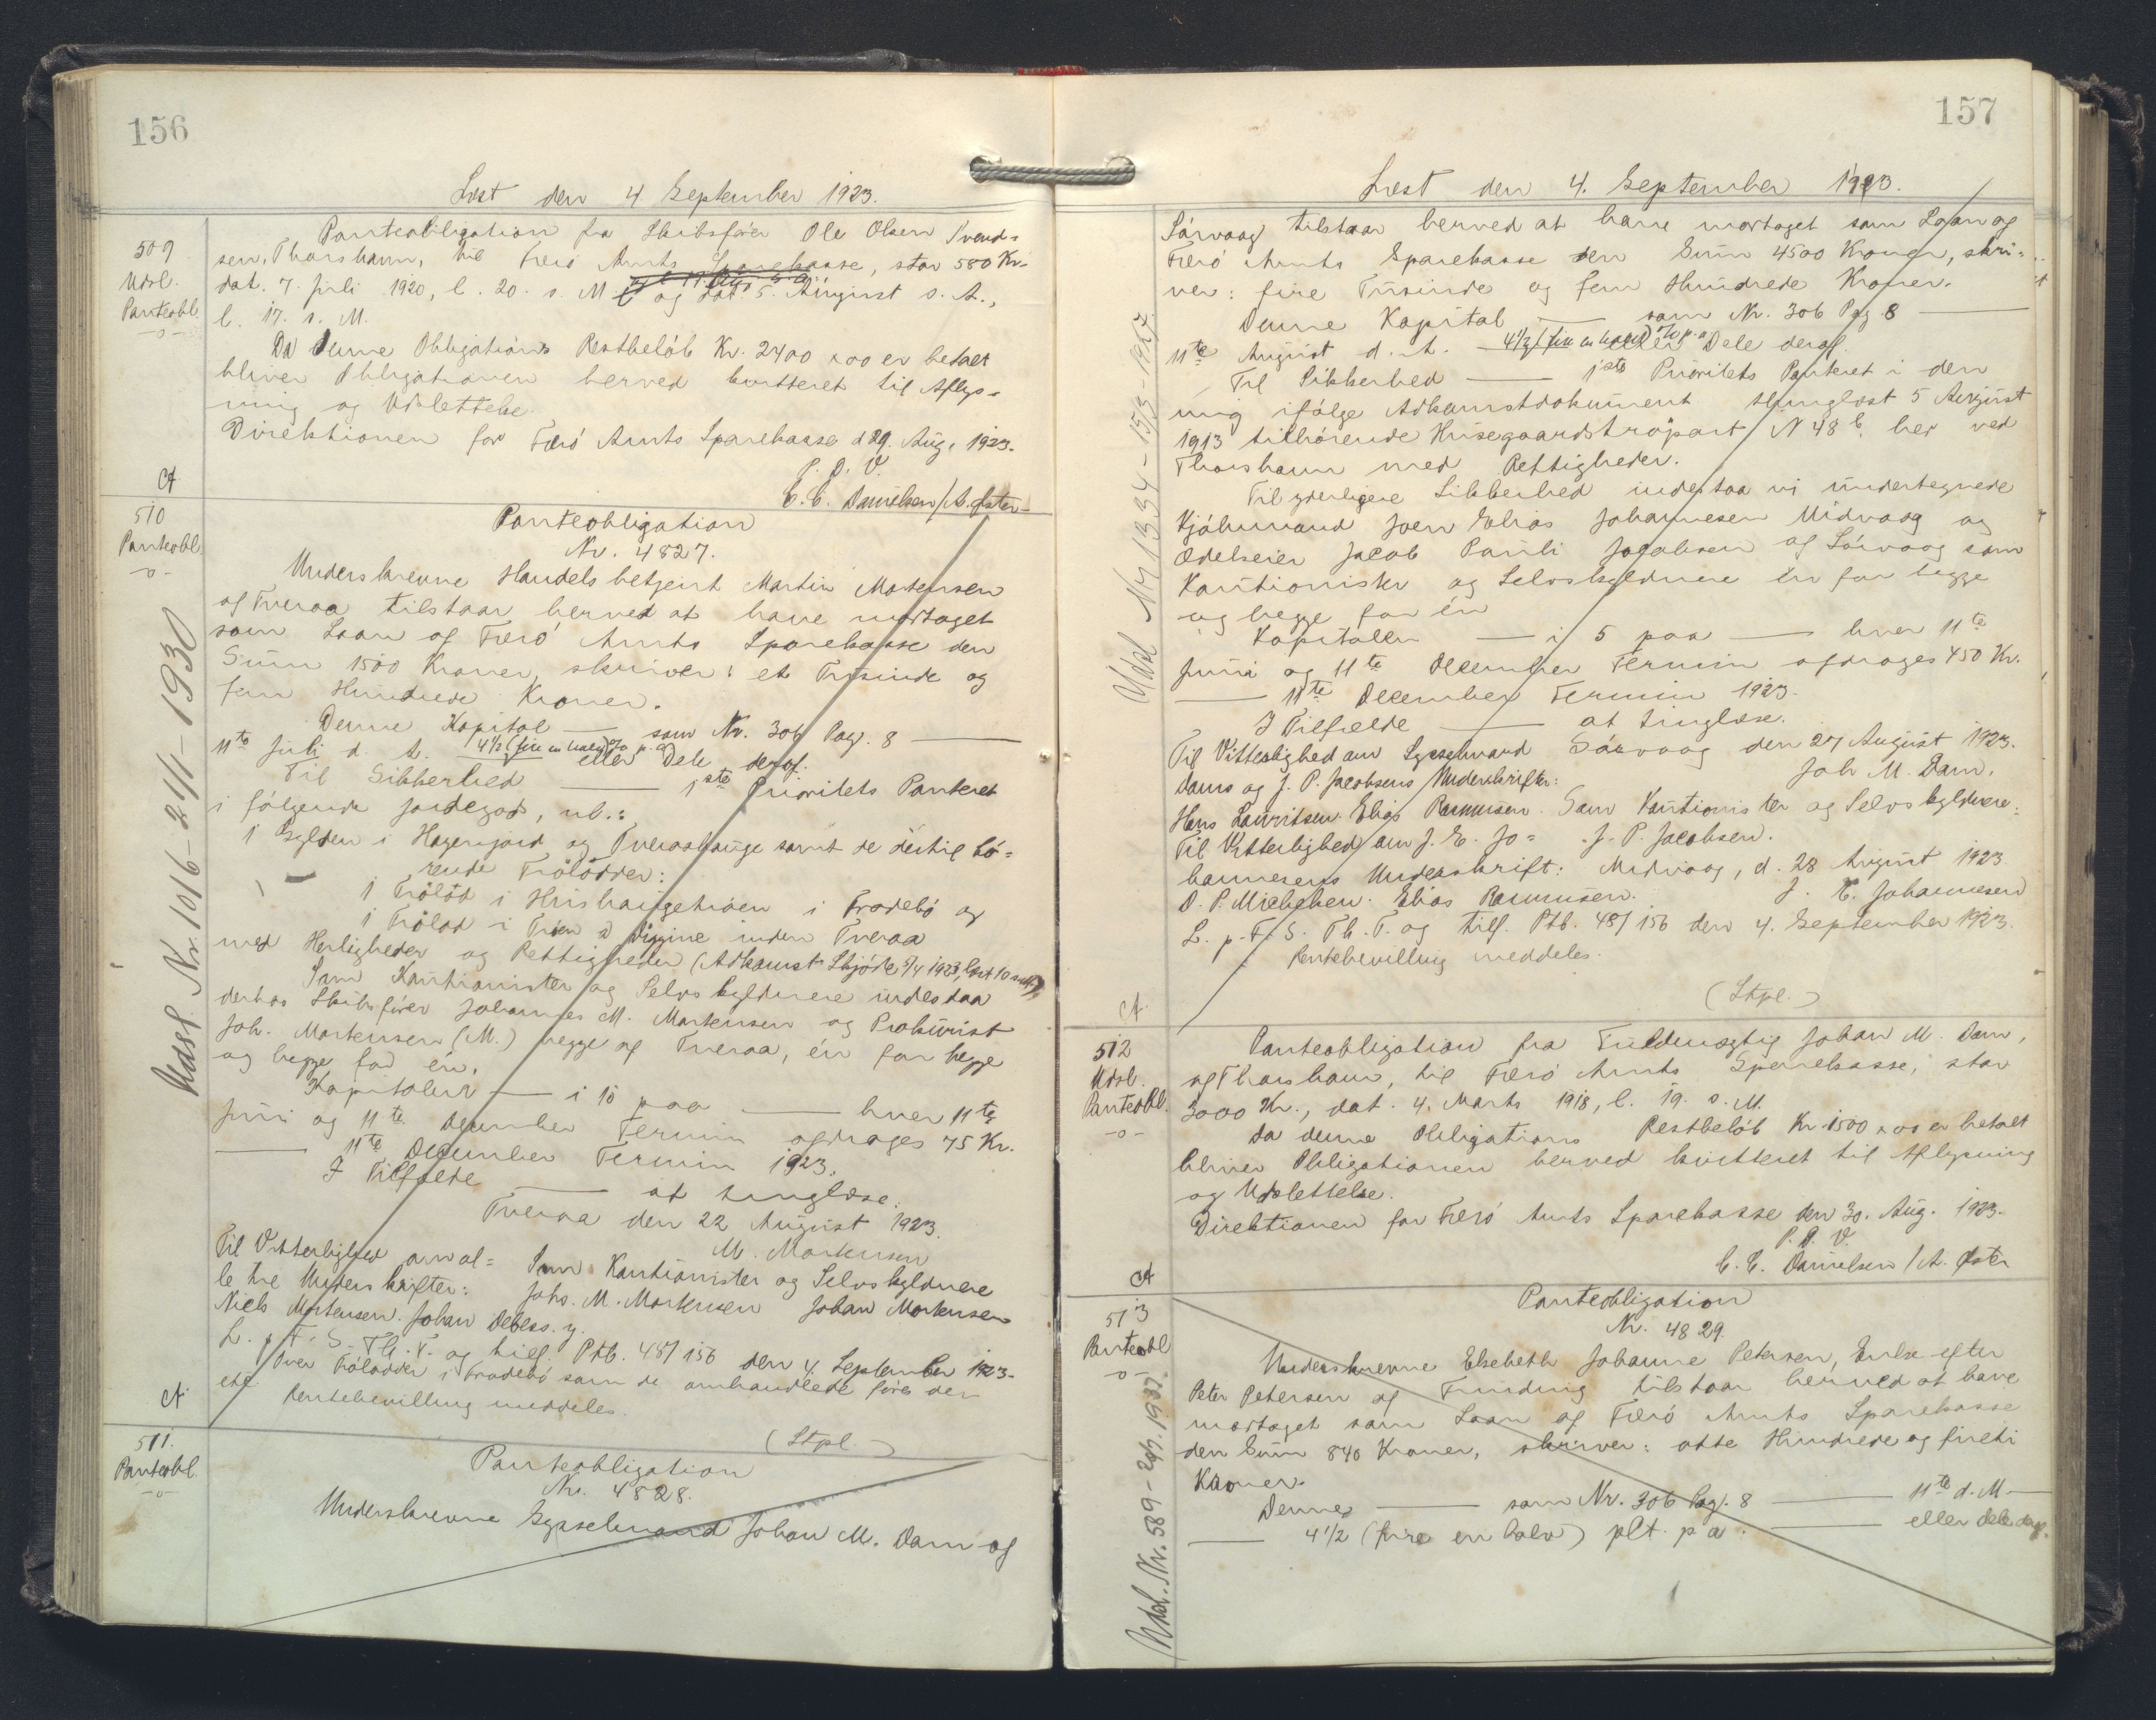 156
Læst den 4 September 1923.
509
Udsl.
Panteobl.
-o-
Panteobligation fra Skibsfører Ole Olsen Svend=
sen, Thorshavn, til Færö Amts Sparekasse, stor 580 Kr.
dat. 7. Juli 1920, l. 20. s. M. og dat. 5. August s. A.,
l. 17. s. M.
Da denne Obligations Restbelöb Kr. 2400 x 00 er betalt
bliver Obligationen herved kvitteret til Aflys=
ning og Udslettelse.
Direktionen for Færö Amts Sparekasse d 29. Aug. 1923.
P. D. V.
C. C. Danielsen / A. Öster
510
Panteobl.
-o-
Panteobligation
Nr. 4827.
Underskrevne Handelsbetjent Martin Mortensen
af Tveraa tilstaar herved at have modtaget
som Laan af Færö Amts Sparekasse den
Sum 1500 Kroner, skriver: et Tusinde og
fem Hundrede Kroner.
Denne Kapital —— som Nr. 306 Pag. 8 ——
11te Juli d. A. 4½ (fire en halv) % p. a. eller Dele deraf.
Til Sikkerhed —— 1ste Prioritets Panteret
i fölgende Jordegods, nl.:
1 Gylden i Hagensjord og Tveroshauge samt de dertil hö=
rende Trölodder:
1 Trölod i Hrishaugetröen i Frodebö og
1 Trölod i Tröen á Digine inden Tveraa
med Herligheder og Rettigheder (Adkomst Skjöde 5/4 1923, læst 10 s. M.)
Som Kautionister og Selvskyldnere indestaa
derhos Skibsförer Johannes M. Mortensen og Prokurist
Joh. Mortensen (M.) begge af Tveraa, én for begge
og begge for én.
Kapitalen —— i 10 paa —— hver 11te
Juni og 11te December Termin afdrages 75 Kr.
—— 11te December Termin 1923.
I Tilfælde —— at tinglæse.
Tveraa den 22 August 1923.
M. Mortensen
Til Vitterlighed om al= Som Kautionister og Selvskyldnere
le tre Underskrifter: Johs. M. Mortensen Johan Mortensen
Niels Mortensen. Johan Debess. y.
L. p. F. S. Th. T. og tilf. Ptb. 48/156 den 4 September 1923.
Over Trölodder i Frodebö som de omhandlede föres der
Rentebevilling meddeles.
(Stpl.)
Udsl. Nr. 1016 - 21/1 - 1930
511.
Panteobl.
-o-
Panteobligation
Nr. 4828.
Underskrevne Sysselmand Johan M. Dam af
157
Læst den 4. September 1923.
Sörvaag tilstaar herved at have modtaget som Laan af
Færö Amts Sparekasse den Sum 4500 Kroner, skri=
ver: fire Tusinde og fem Hundrede Kroner.
Denne Kapital —— som Nr. 306 Pag. 8 ——
11te August d. A. —— 4½ (fire en halv) % p. a. eller Dele deraf.
Til Sikkerhed —— 1ste Prioritets Panteret i den
mig ifölge Adkomstdokument tinglæst 5 August
1913 tilhörende Husegaardströpart N 48 b. her ved
Thorshavn med Rettigheder.
Til yderligere Sikkerhed indestaa vi undertegnede
Kjöbmand Joen Elias Johannesen Midvaag og
Ödelseier Jacob Pauli Jacobsen af Sörvaag som
Kautionister og Selvskyldnere én for begge
og begge for én
Kapitalen —— i 5 paa —— hver 11te
Juni og 11te December Termin afdrages 450 Kr.
—— 11te December Termin 1923.
I Tilfælde —— at tinglæse.
Til Vitterlighed om Sysselmand Sörvaag den 27 August 1923.
Dams og J. P. Jacobsens Underskrifter: Joh M. Dam.
Hans Lauritsen. Elias Rasmussen. Som Kautionister og Selvskyldnere:
Til Vitterlighed om J. E. Jo= J. P. Jacobsen.
hannesens Underskrift: Midvaag, d. 28 August 1923
D. P. Michelsen. Elias Rasmussen. J. E. Johannesen
L. p. F. S. Th. T. og tilf. Ptb. 48/156 den 4. September 1923.
Rentebevilling meddeles.
(Stpl.)
Udsl Nr 1334 - 15/3 - 1927.
512
Udsl.
Panteobl.
-o-
Panteobligation fra Fuldmægtig Johan M. Dam,
af Thorshavn, til Færö Amts Sparekasse, stor
3000 Kr., dat. 4. Marts 1918, l. 19. s. M.
Da denne Obligations Restbelöb Kr 1500 x 00 er betalt
bliver Obligationen herved kvitteret til Aflysning
og Udslettelse.
Direktionen for Færö Amts Sparekasse den 30. Aug. 1923.
P. D. V.
C. C. Danielsen / A. Öster
513
Panteobl
-o-
Panteobligation
Nr. 4829.
Underskrevne Elsebeth Johanne Petersen, Enke efter
Peter Petersen af Funding tilstaar herved at have
modtaget som Laan af Færö Amts Sparekasse
den Sum 840 Kroner, skriver: otte Hundrede og fireti
Kroner.
Denne —— som Nr. 306 Pag. 8 —— 11te d. M. ——
—— 4½ (fire en halv) pCt. p a. —— eller dele deraf.